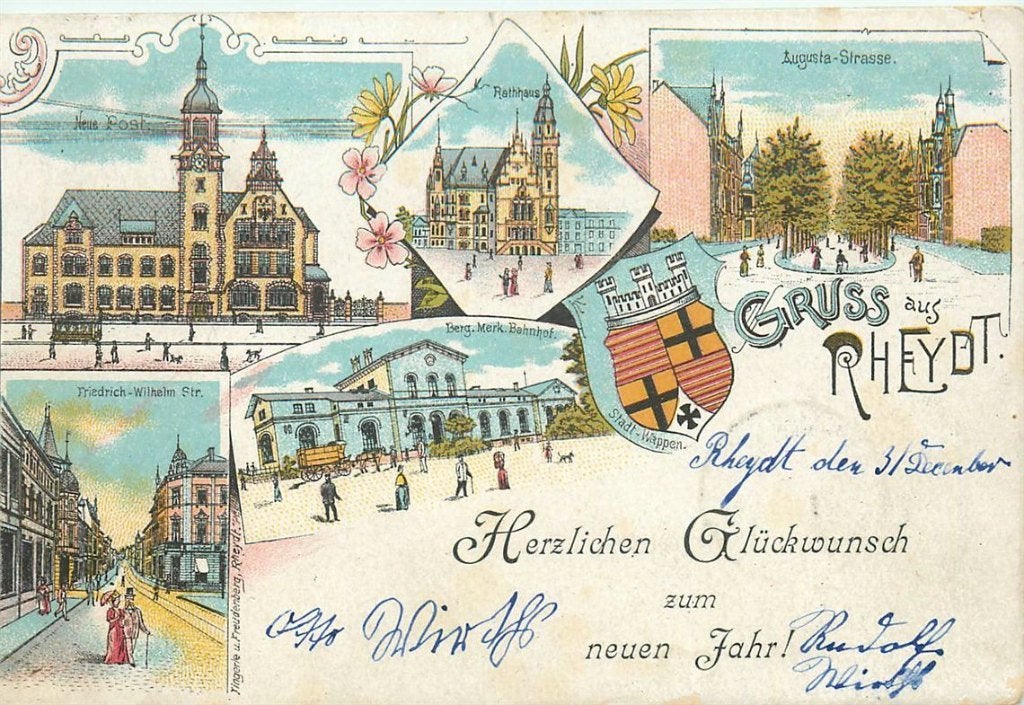 Neue Post.
Rathhaus
Augusta-Strasse.
GRUSS aus
RHEYDT.
Berg. Merk. Bahnhof.
Stadt-Wappen.
Friedrich-Wilhelm Str.
Rheydt den 31 December
Herzlichen Glückwunsch
zum
neuen Jahr!
Otto Wirths
Rudolf
Wirths
u. Freudenberg, Rheydt.